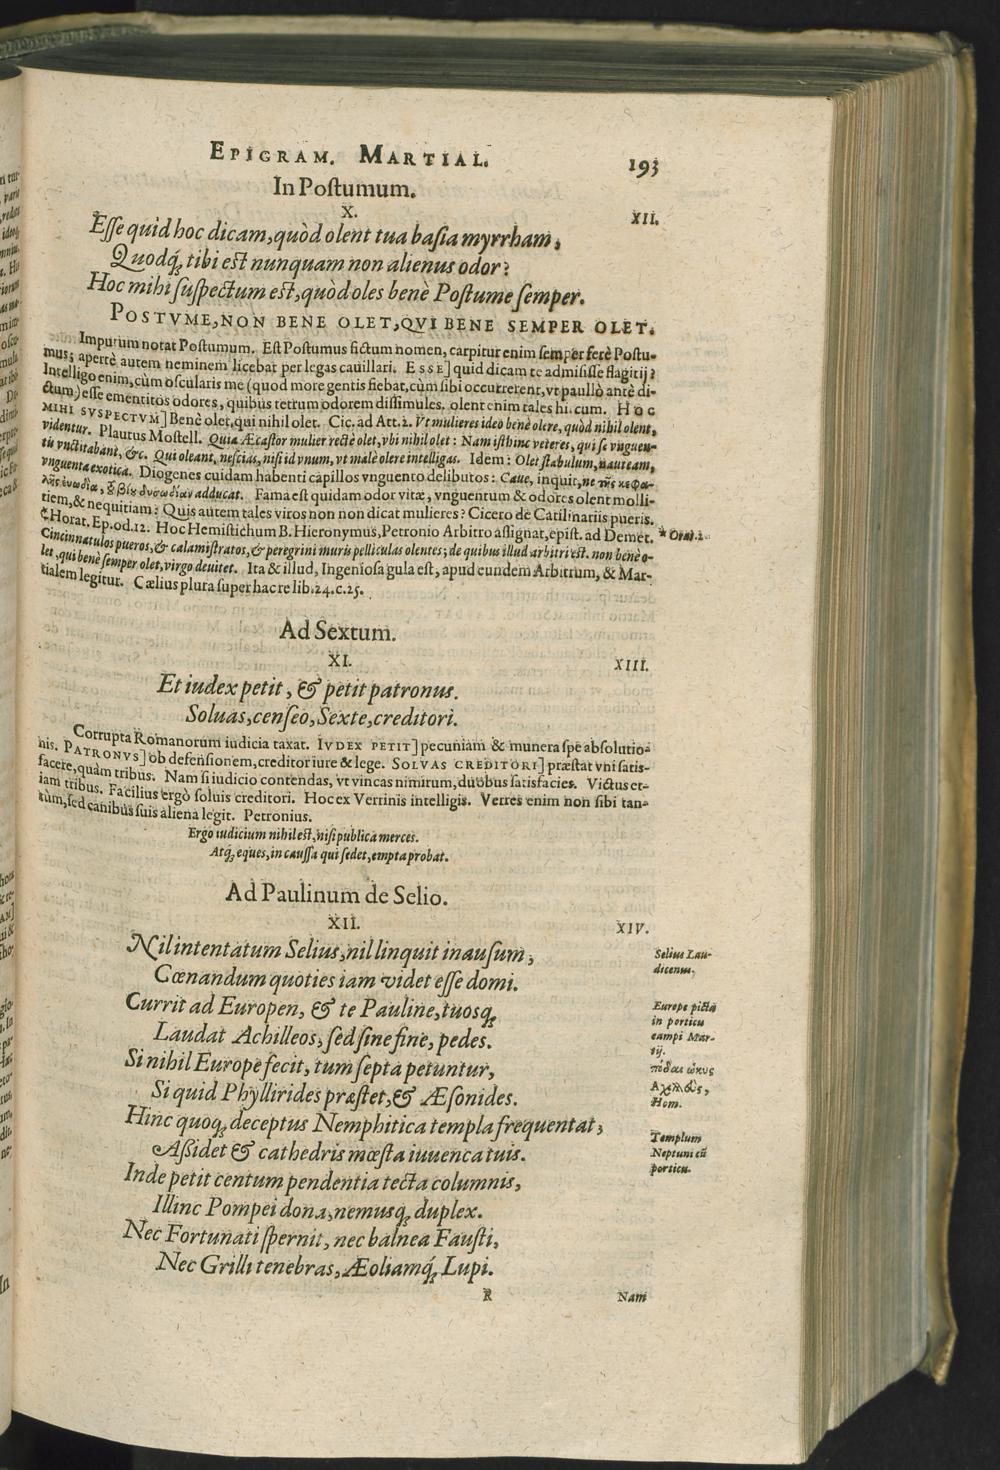 EPIGRAM. MARTIAL. 193
In Postumum.
X. XII.
Esse quid hoc dicam, quòd olent tua basia myrrham,
Quodq́; tibi est nunquam non alienus odor?
Hoc mihi suspectum est, quòd oles benè Postume semper.
POSTVME, NON BENE OLET, QVI BENE SEMPER OLET.
Impurum notat Postumum. Est Postumus fictum nomen, carpitur enim semper ferè Postu-
mus; apertè autem neminem licebat per legas cauillari. ESSE] quid dicam te admisisse flagitij?
Intelligo enim, cùm oscularis me (quod more gentis fiebat, cùm sibi occurrerent, vt paullò antè di-
ctum) esse ementitos odores, quibus tetrum odorem dissimules. olent enim tales hircum. HOC
MIHI SVSPECTVM] Benè olet, qui nihil olet. Cic. ad Att. 2. Vt mulieres ideo benè olere, quòd nihil olent,
videntur. Plautus Mostell. Quia Æcastor mulier rectè olet, vbi nihil olet: Nam isthinc veteres, qui se vnguen-
tis vnctitabant, &c. Qui oleant, nescias, nisi id vnum, vt malè olere intelligas. Idem: Olet stabulum, nauteam,
vnguenta exotica. Diogenes cuidam habenti capillos vnguento delibutos: Caue, inquit, ne τῆς κεφα-
λῆς ἐυωδία, ϟ βίȣ δυσωδίαν adducat. Fama est quidam odor vitæ, vnguentum & odores olent molli-
tiem, & nequitiam: Quis autem tales viros non non dicat mulieres? Cicero de Catilinariis pueris.
& Horat. Ep. od. 12. Hoc Hemistichum B. Hieronymus, Petronio Arbitro assignat, epist. ad Demet. * Orat. 2.
Cincinnatulos pueros, & calamistratos, & peregrini muris pelliculas olentes; de quibus illud arbitri est. non benè o-
let, qui benè semper olet, virgo deuitet. Ita & illud, Ingeniosa gula est, apud eundem Arbitrum, & Mar-
tialem legitur. Cælius plura super hac re lib. 24. c. 25.
Ad Sextum.
XI. XIII.
Et iudex petit, & petit patronus.
Soluas, censeo, Sexte, creditori.
Corrupta Romanorum iudicia taxat. IVDEX PETIT] pecuniam & munera spe absolutio-
nis. PATRONVS] ob defensionem, creditor iure & lege. SOLVAS CREDITORI] præstat vni satis-
facere, quàm tribus. Nam si iudicio contendas, vt vincas nimirum, duobus satisfacies. Victus et-
iam tribus. Facilius ergò soluis creditori. Hoc ex Verrinis intelligis. Verres enim non sibi tan-
tùm, sed canibus suis aliena legit. Petronius.
Ergo iudicium nihil est, nisi publica merces.
Atq́; eques, in caussa qui sedet, empta probat.
Ad Paulinum de Selio.
XII. XIV.
Nil intentatum Selius, nil linquit inausum, Selius Lau-
dicenus.
Cœnandum quoties iam videt esse domi.
Currit ad Europen, & te Pauline, tuosq́; Europe picta
in porticu
Laudat Achilleos, sed sine fine, pedes. campi Mar-
tij.
Si nihil Europe fecit, tum septa petuntur, πόδας ὠκυς
Si quid Phyllirides præstet, & Æsonides. Αχιλλεὺς,
Hom.
Hinc quoq; deceptus Nemphitica templa frequentat, Templum
Assidet & cathedris mœsta iuuenca tuis. Neptuni cũ
porticu.
Inde petit centum pendentia tecta columnis,
Illinc Pompei dona, nemusq́; duplex.
Nec Fortunati spernit, nec balnea Fausti,
Nec Grilli tenebras, Æoliamq́; Lupi.
R Nam